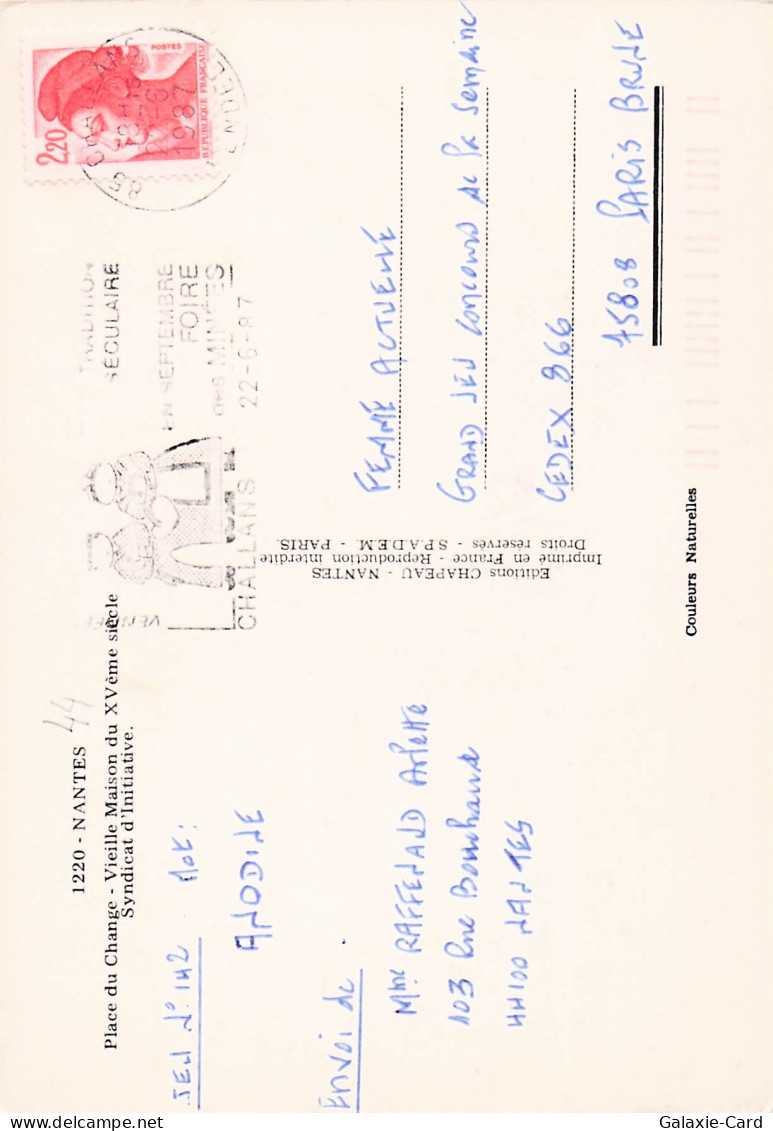 1220 - NANTES
44
Place du Change - Vieille Maison du XVème siècle
Syndicat d'Initiative.
JEU N° 142 . MOT :
ANODINE
Envoi de .
Mme RAFFENAUD Arlette
103 Rue
44100 NANTES
Editions CHAPEAU - NANTES
Imprimé en France - Reproduction interdite
Droits réservés - S.P.A.D.E.M. - PARIS.
VENDÉE
TRADITION
SÉCULAIRE
EN SEPTEMBRE
FOIRE
DES MINÉES
CHALLANS 22-6-87
85 CHALLANS
-6
1987
VENDÉE
POSTES
2,20
REPUBLIQUE FRANÇAISE
FEMME ACTUELLE
GRAND JEU CONCOURS de la Semaine
CEDEX 966
75808 PARIS BRUNE
Couleurs Naturelles
Galaxie-Card